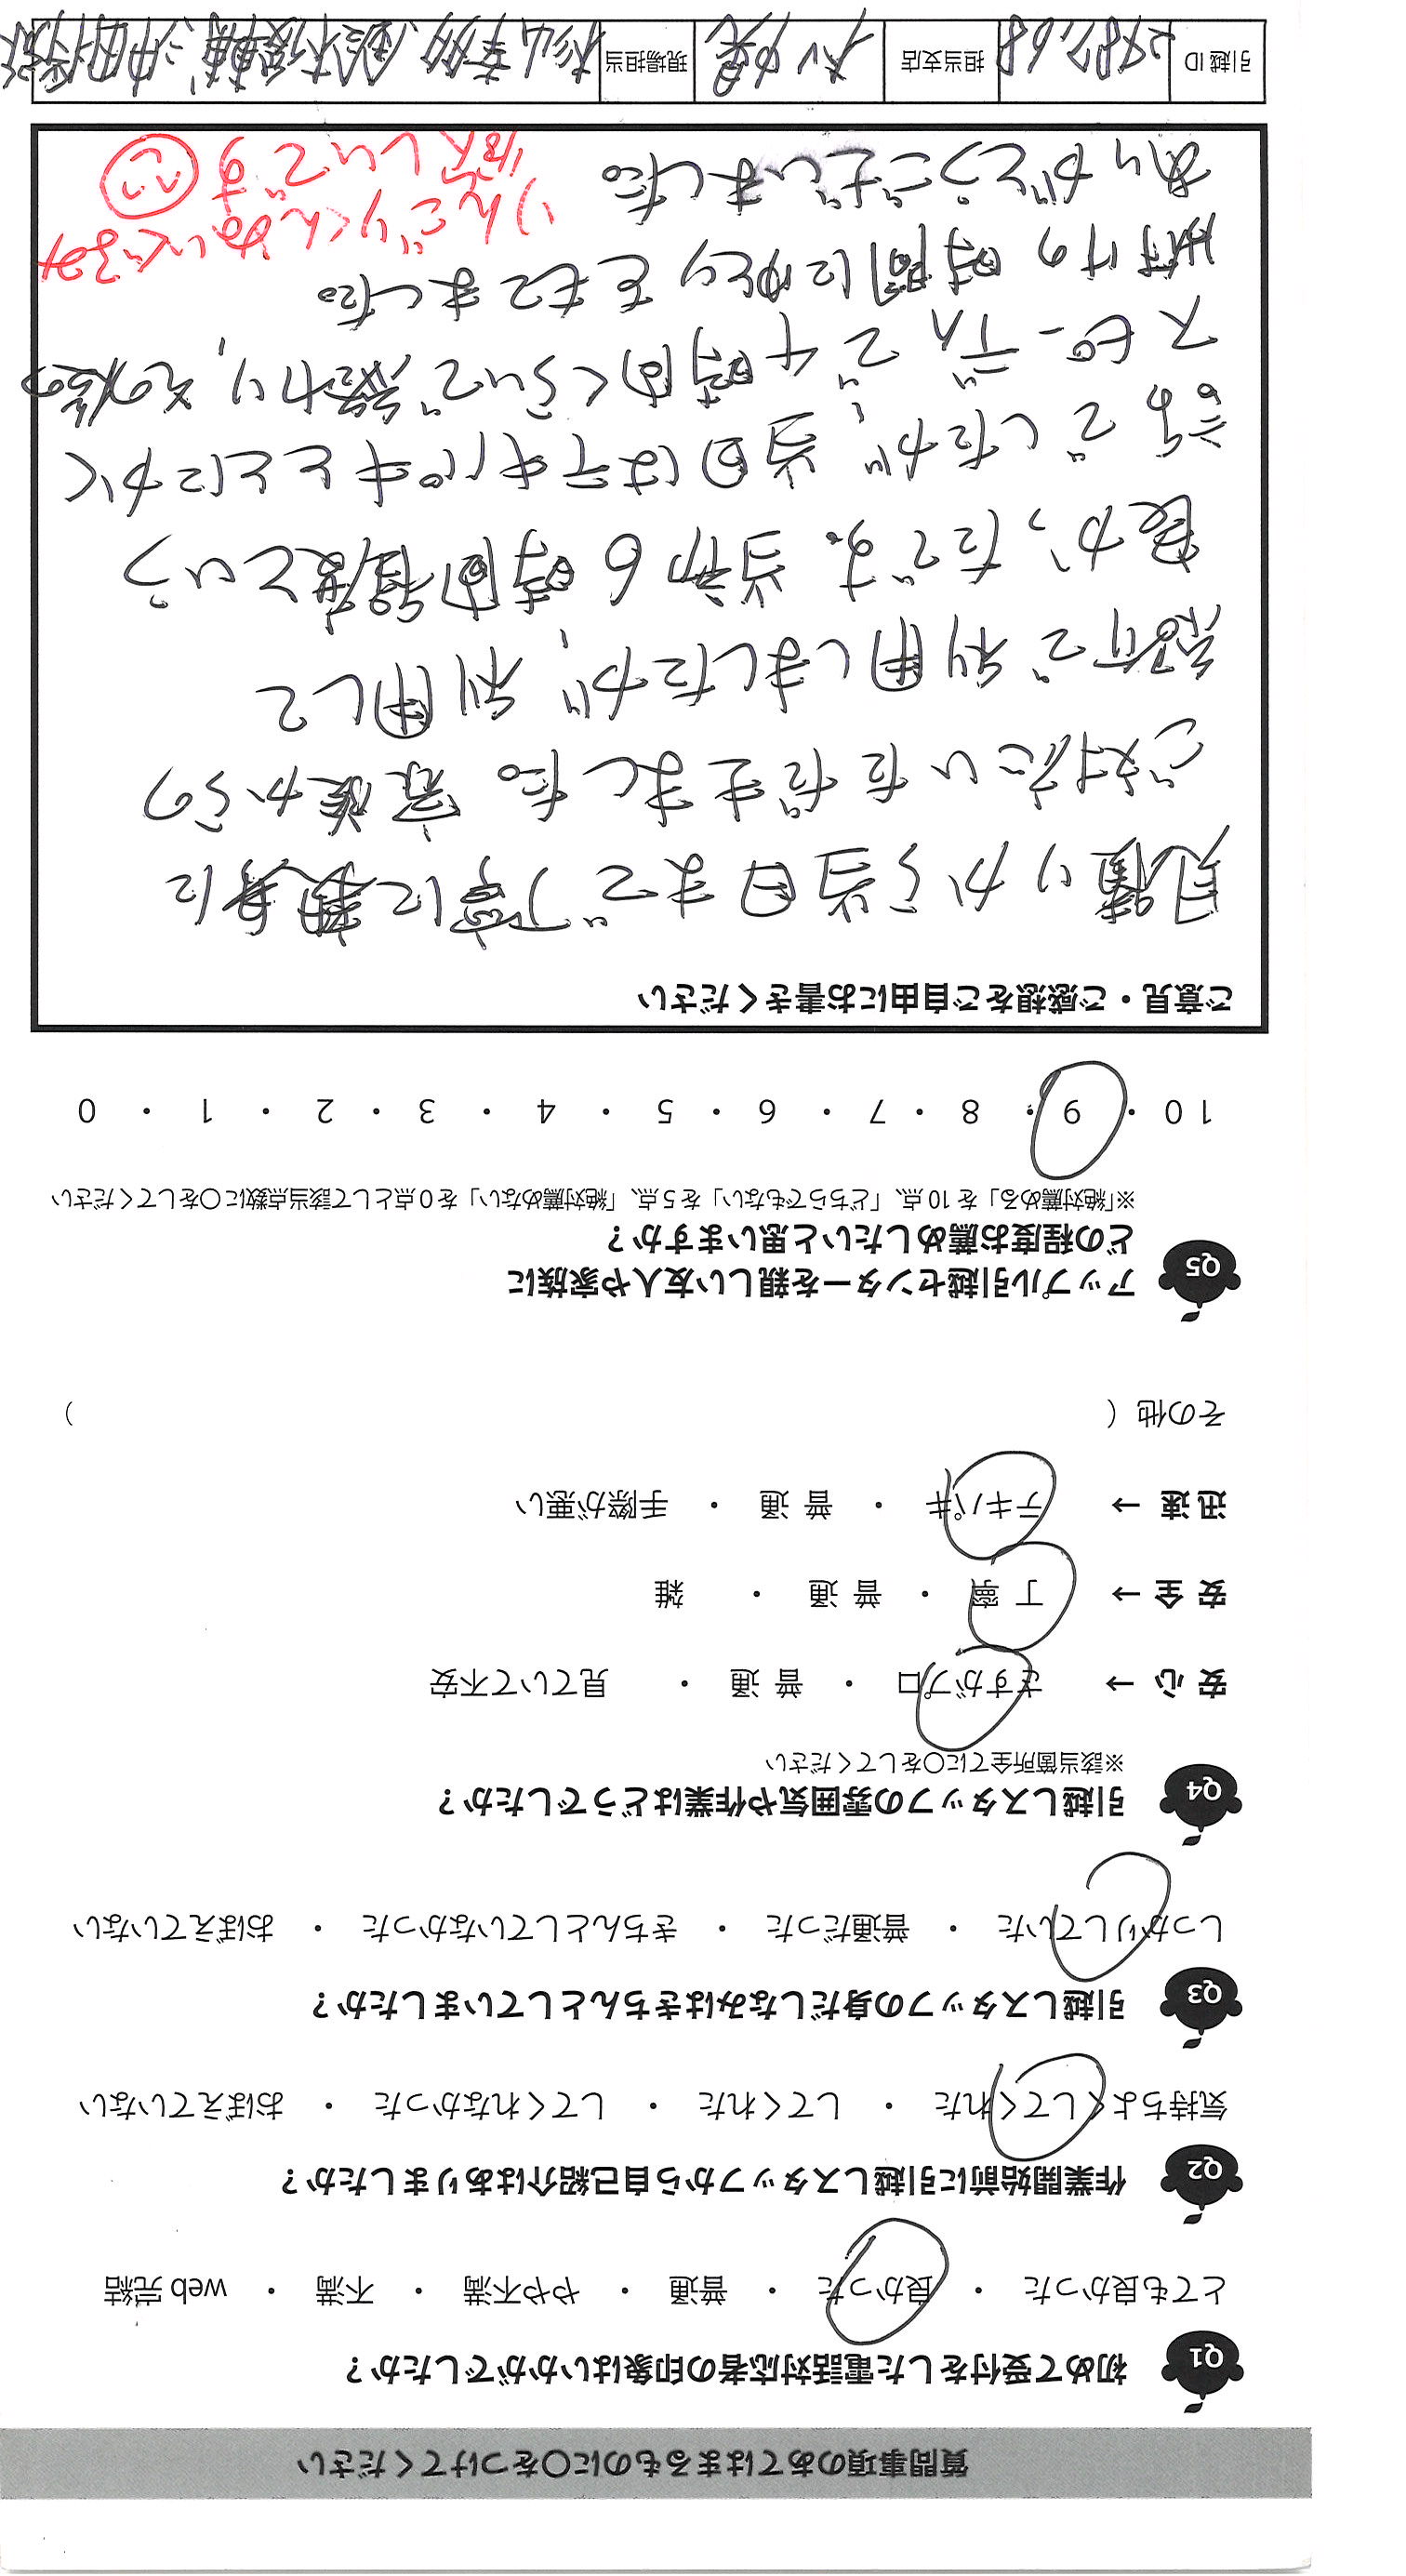 質問事項のあてはまるものに○をつけてください
Q1 初めて受付をした電話対応者の印象はいかがでしたか？
とても良かった ・ 良かった ・ 普通 ・ やや不満 ・ 不満 ・ web 完結
Q2 作業開始前に引越しスタッフから自己紹介はありましたか？
気持ちよくしてくれた ・ してくれた ・ してくれなかった ・ おぼえていない
Q3 引越しスタッフの身だしなみはきちんとしていましたか？
しっかりしていた ・ 普通だった ・ きちんとしていなかった ・ おぼえていない
Q4 引越しスタッフの雰囲気や作業はどうでしたか？
※該当箇所全てに○をしてください
安 心 → さすがプロ ・ 普 通 ・ 見ていて不安
安 全 → 丁 寧 ・ 普 通 ・ 雑
迅 速 → テキパキ ・ 普 通 ・ 手際が悪い
その他（ ）
Q5 アップル引越センターを親しい友人や家族に
どの程度お薦めしたいと思いますか？
※「絶対薦める」を 10 点、「どちらでもない」を 5 点、「絶対薦めない」を 0 点として該当点数に○をしてください
10 ・ 9 ・ 8 ・ 7 ・ 6 ・ 5 ・ 4 ・ 3 ・ 2 ・ 1 ・ 0
ご意見・ご感想をご自由にお書きください
見積りから当日まで丁寧に親身に
ご対応いただきました。家族からの
紹介で利用しましたが、利用して
良かったです。当初6時間程度という
話でしたが、当日はテキパキととにかく
スピーディで、4時間くらいで終わり、その後の
片付けの時間にゆとりをもてました。
ありがとうございました。
りんごりくん
探しています
引越 ID 2987,68 担当支店 現場担当